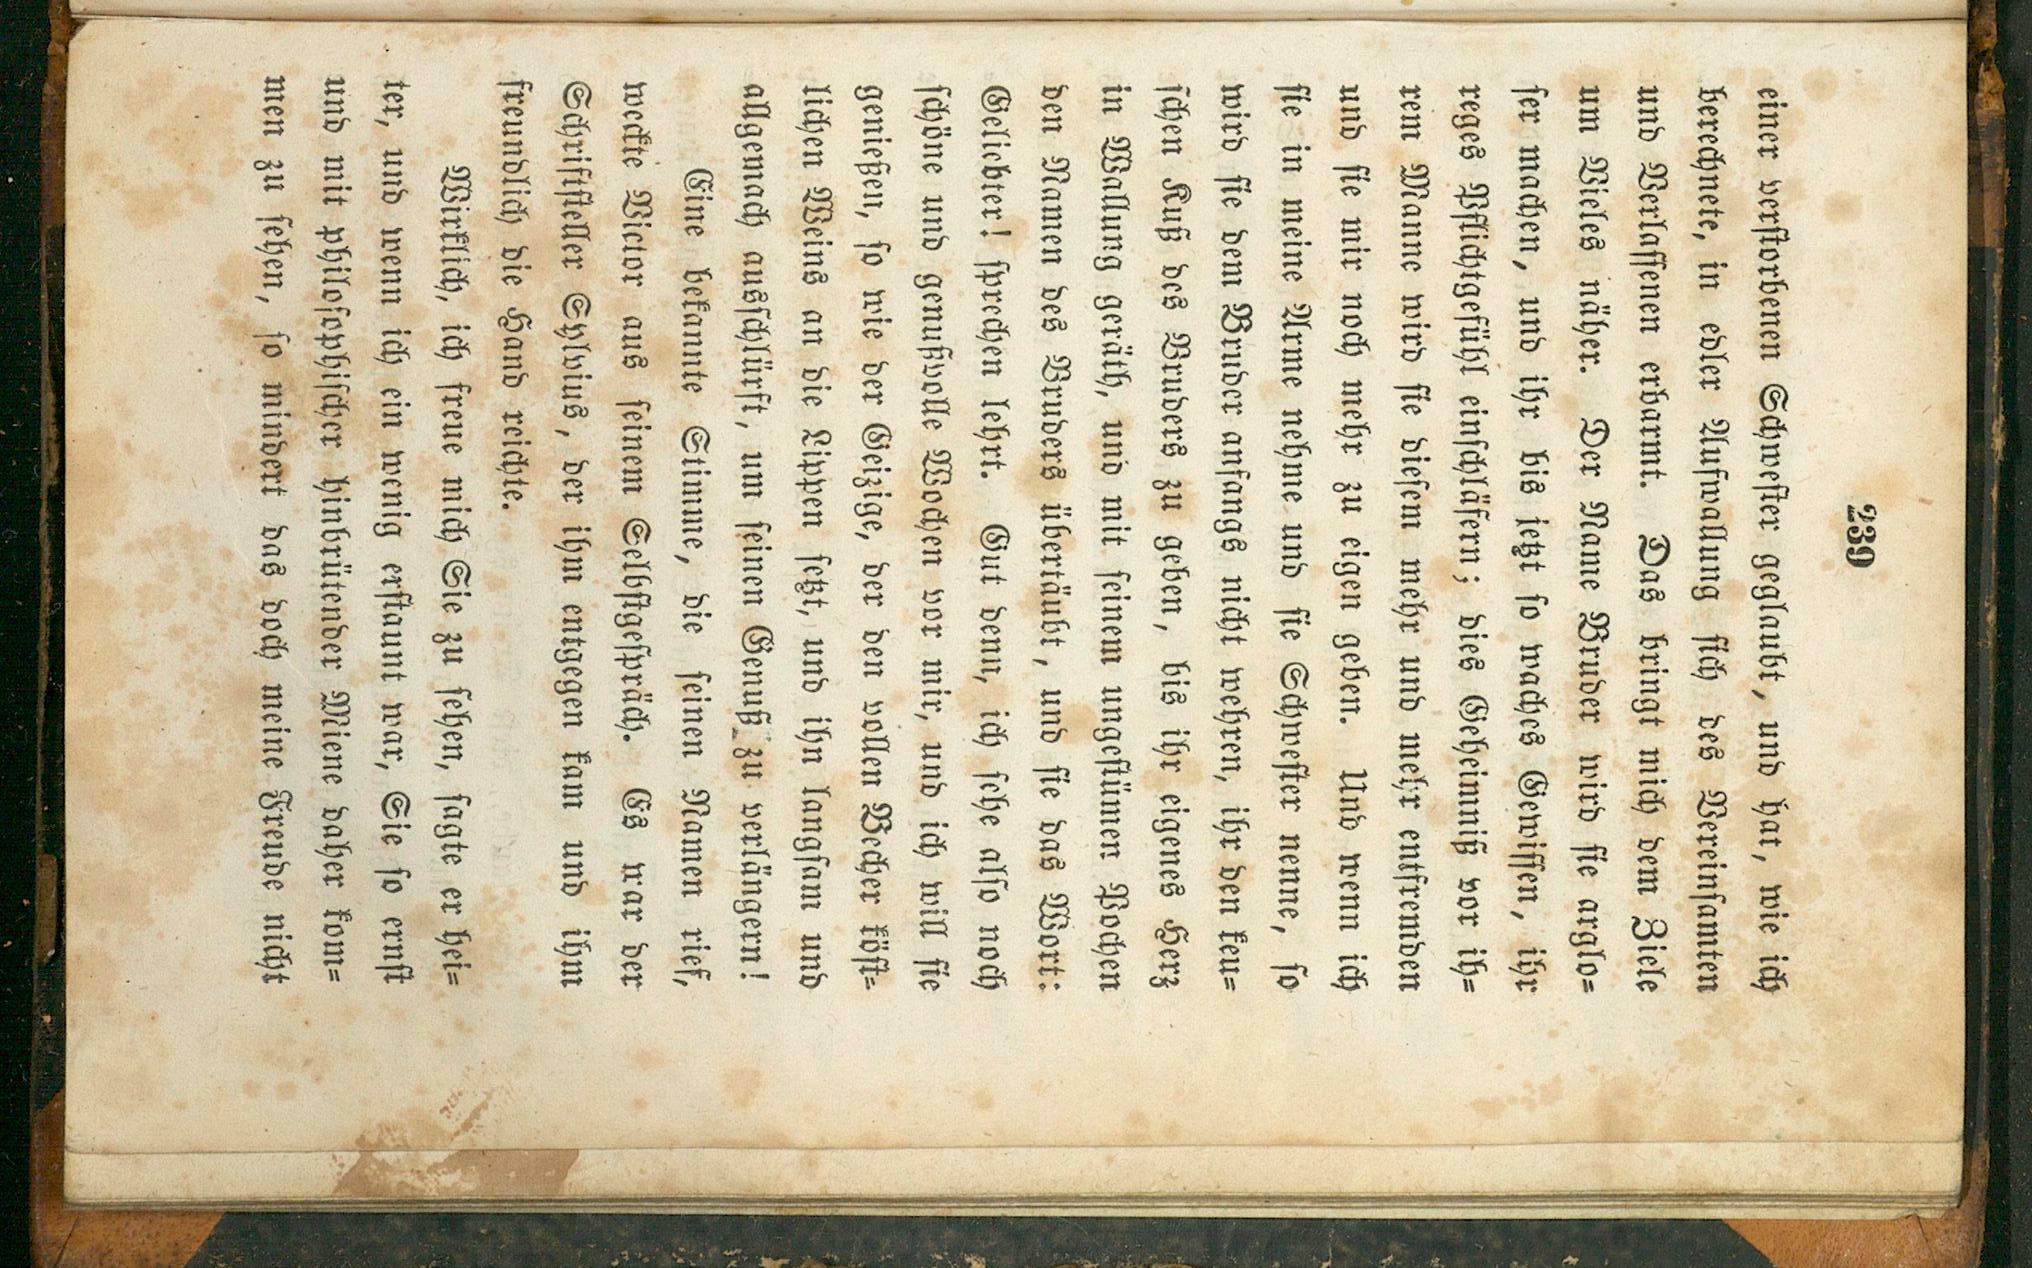 239
einer verstorbenen Schwester geglaubt, und hat, wie ich
berechnete, in edler Aufwallung sich des Vereinsamten
und Verlassenen erbarmt. Das bringt mich dem Ziele
um Vieles näher. Der Name Bruder wird sie arglo=
ser machen, und ihr bis jetzt so waches Gewissen, ihr
reges Pflichtgefühl einschläfern; dies Geheimniß vor ih=
rem Manne wird sie diesem mehr und mehr entfremden
und sie mir noch mehr zu eigen geben. Und wenn ich
sie in meine Arme nehme und sie Schwester nenne, so
wird sie dem Bruder anfangs nicht wehren, ihr den keu=
schen Kuß des Bruders zu geben, bis ihr eigenes Herz
in Wallung geräth, und mit seinem ungestümen Pochen
den Namen des Bruders übertäubt, und sie das Wort:
Geliebter! sprechen lehrt. Gut denn, ich sehe also noch
schöne und genußvolle Wochen vor mir, und ich will sie
genießen, so wie der Geizige, der den vollen Becher köst=
lichen Weins an die Lippen setzt, und ihn langsam und
allgemach ausschlürft, um seinen Genuß zu verlängern!
Eine bekannte Stimme, die seinen Namen rief,
weckte Victor aus seinem Selbstgespräch. Es war der
Schriftsteller Sylvius, der ihm entgegen kam und ihm
freundlich die Hand reichte.
Wirklich, ich freue mich Sie zu sehen, sagte er hei=
ter, und wenn ich ein wenig erstaunt war, Sie so ernst
und mit philosophischer hinbrütender Miene daher kom=
men zu sehen, so mindert das doch meine Freude nicht